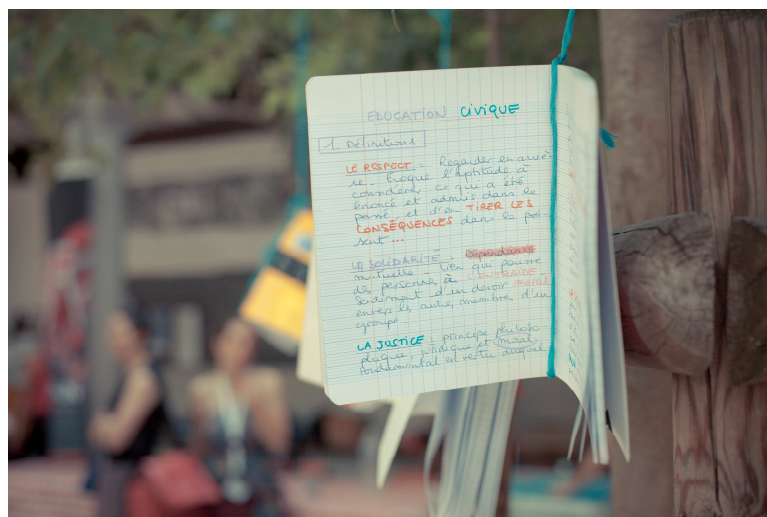 EDUCATION CIVIQUE
1. Définitions
LE RESPECT : Regarder en arriè-
re - Evoque l'aptitude à
considérer ce qui a été
énoncé et admis dans le
passé et d'en TIRER LES
CONSÉQUENCES dans le pré-
sent ...
LA SOLIDARITÉ : Dépendance
mutuelle - lien qui pousse
des personnes à L'ENTRAIDE -
Sentiment d'un devoir moral
envers les autres membres d'un
groupe.
LA JUSTICE : principe philoso-
phique, juridique et moral,
fondamental en vertu duquel